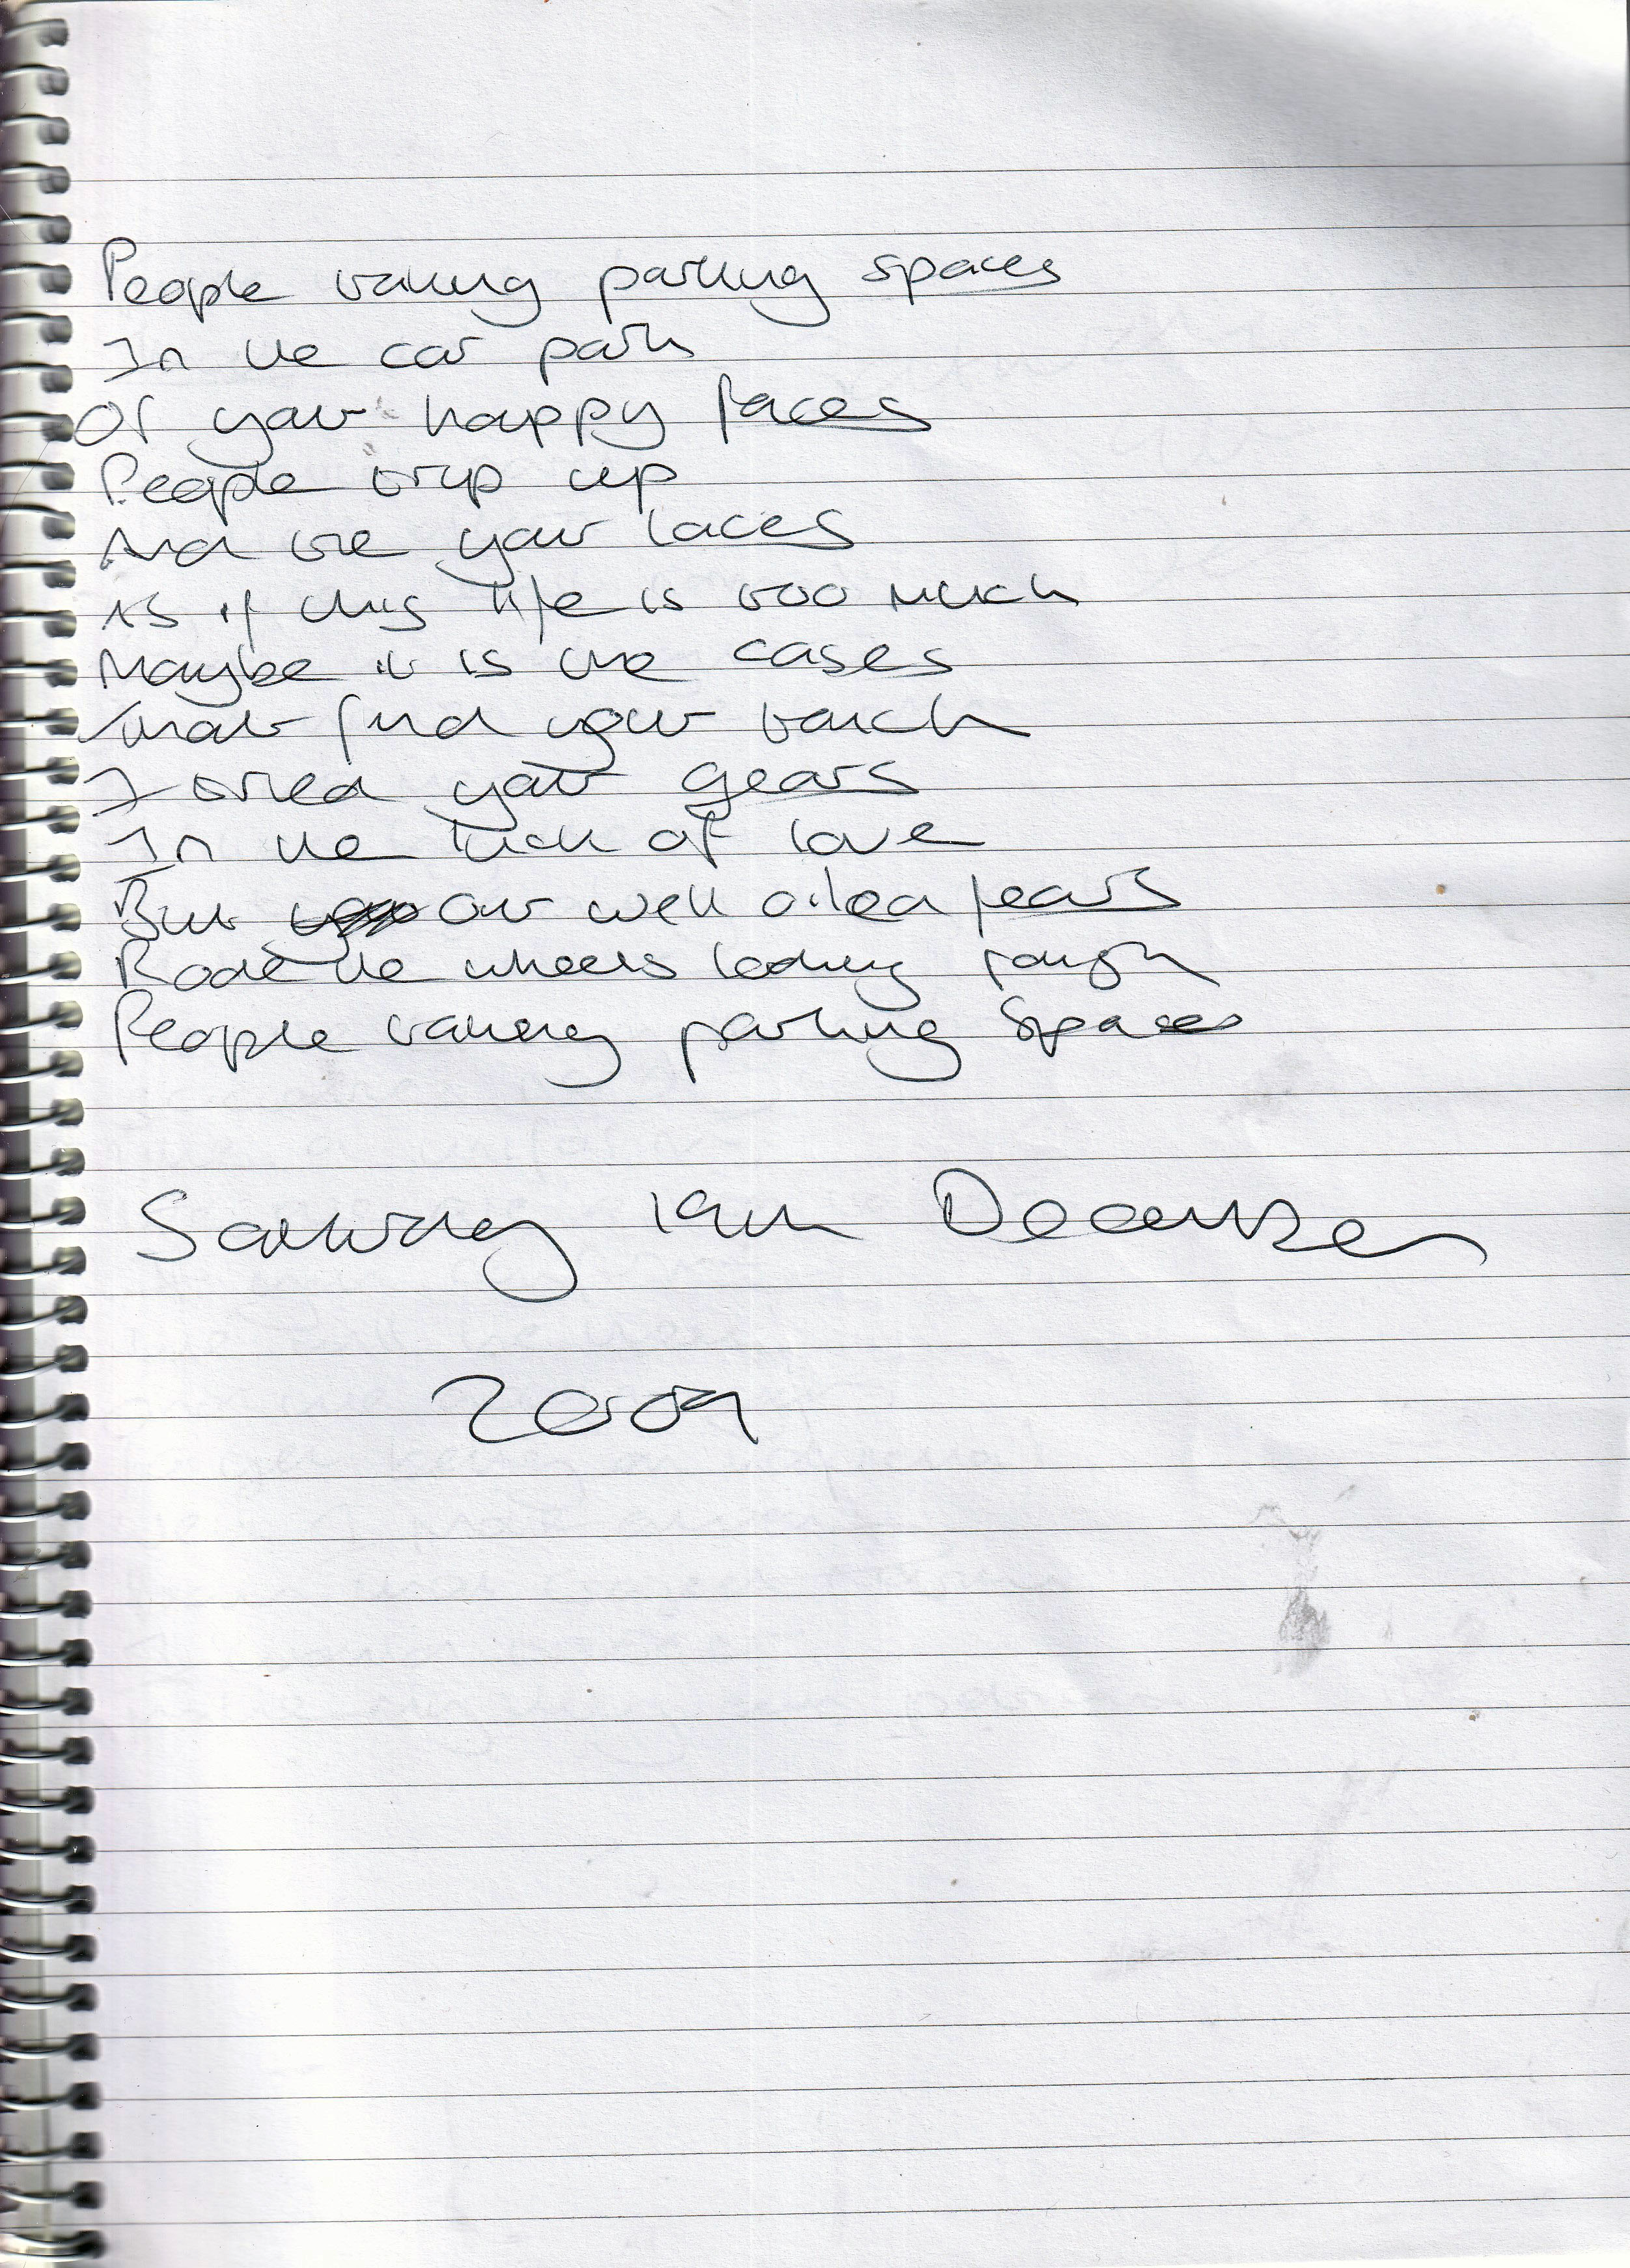 People taking parking spaces
In the car park
Of your happy faces
People trip up
And tie your laces
As if this life is too much
Maybe it is the cases
That find your touch
I tried your gears
In the luck of love
But our well oiled fears
Rode the wheels leading rough
People taking parking spaces
Saturday 19th December
2009